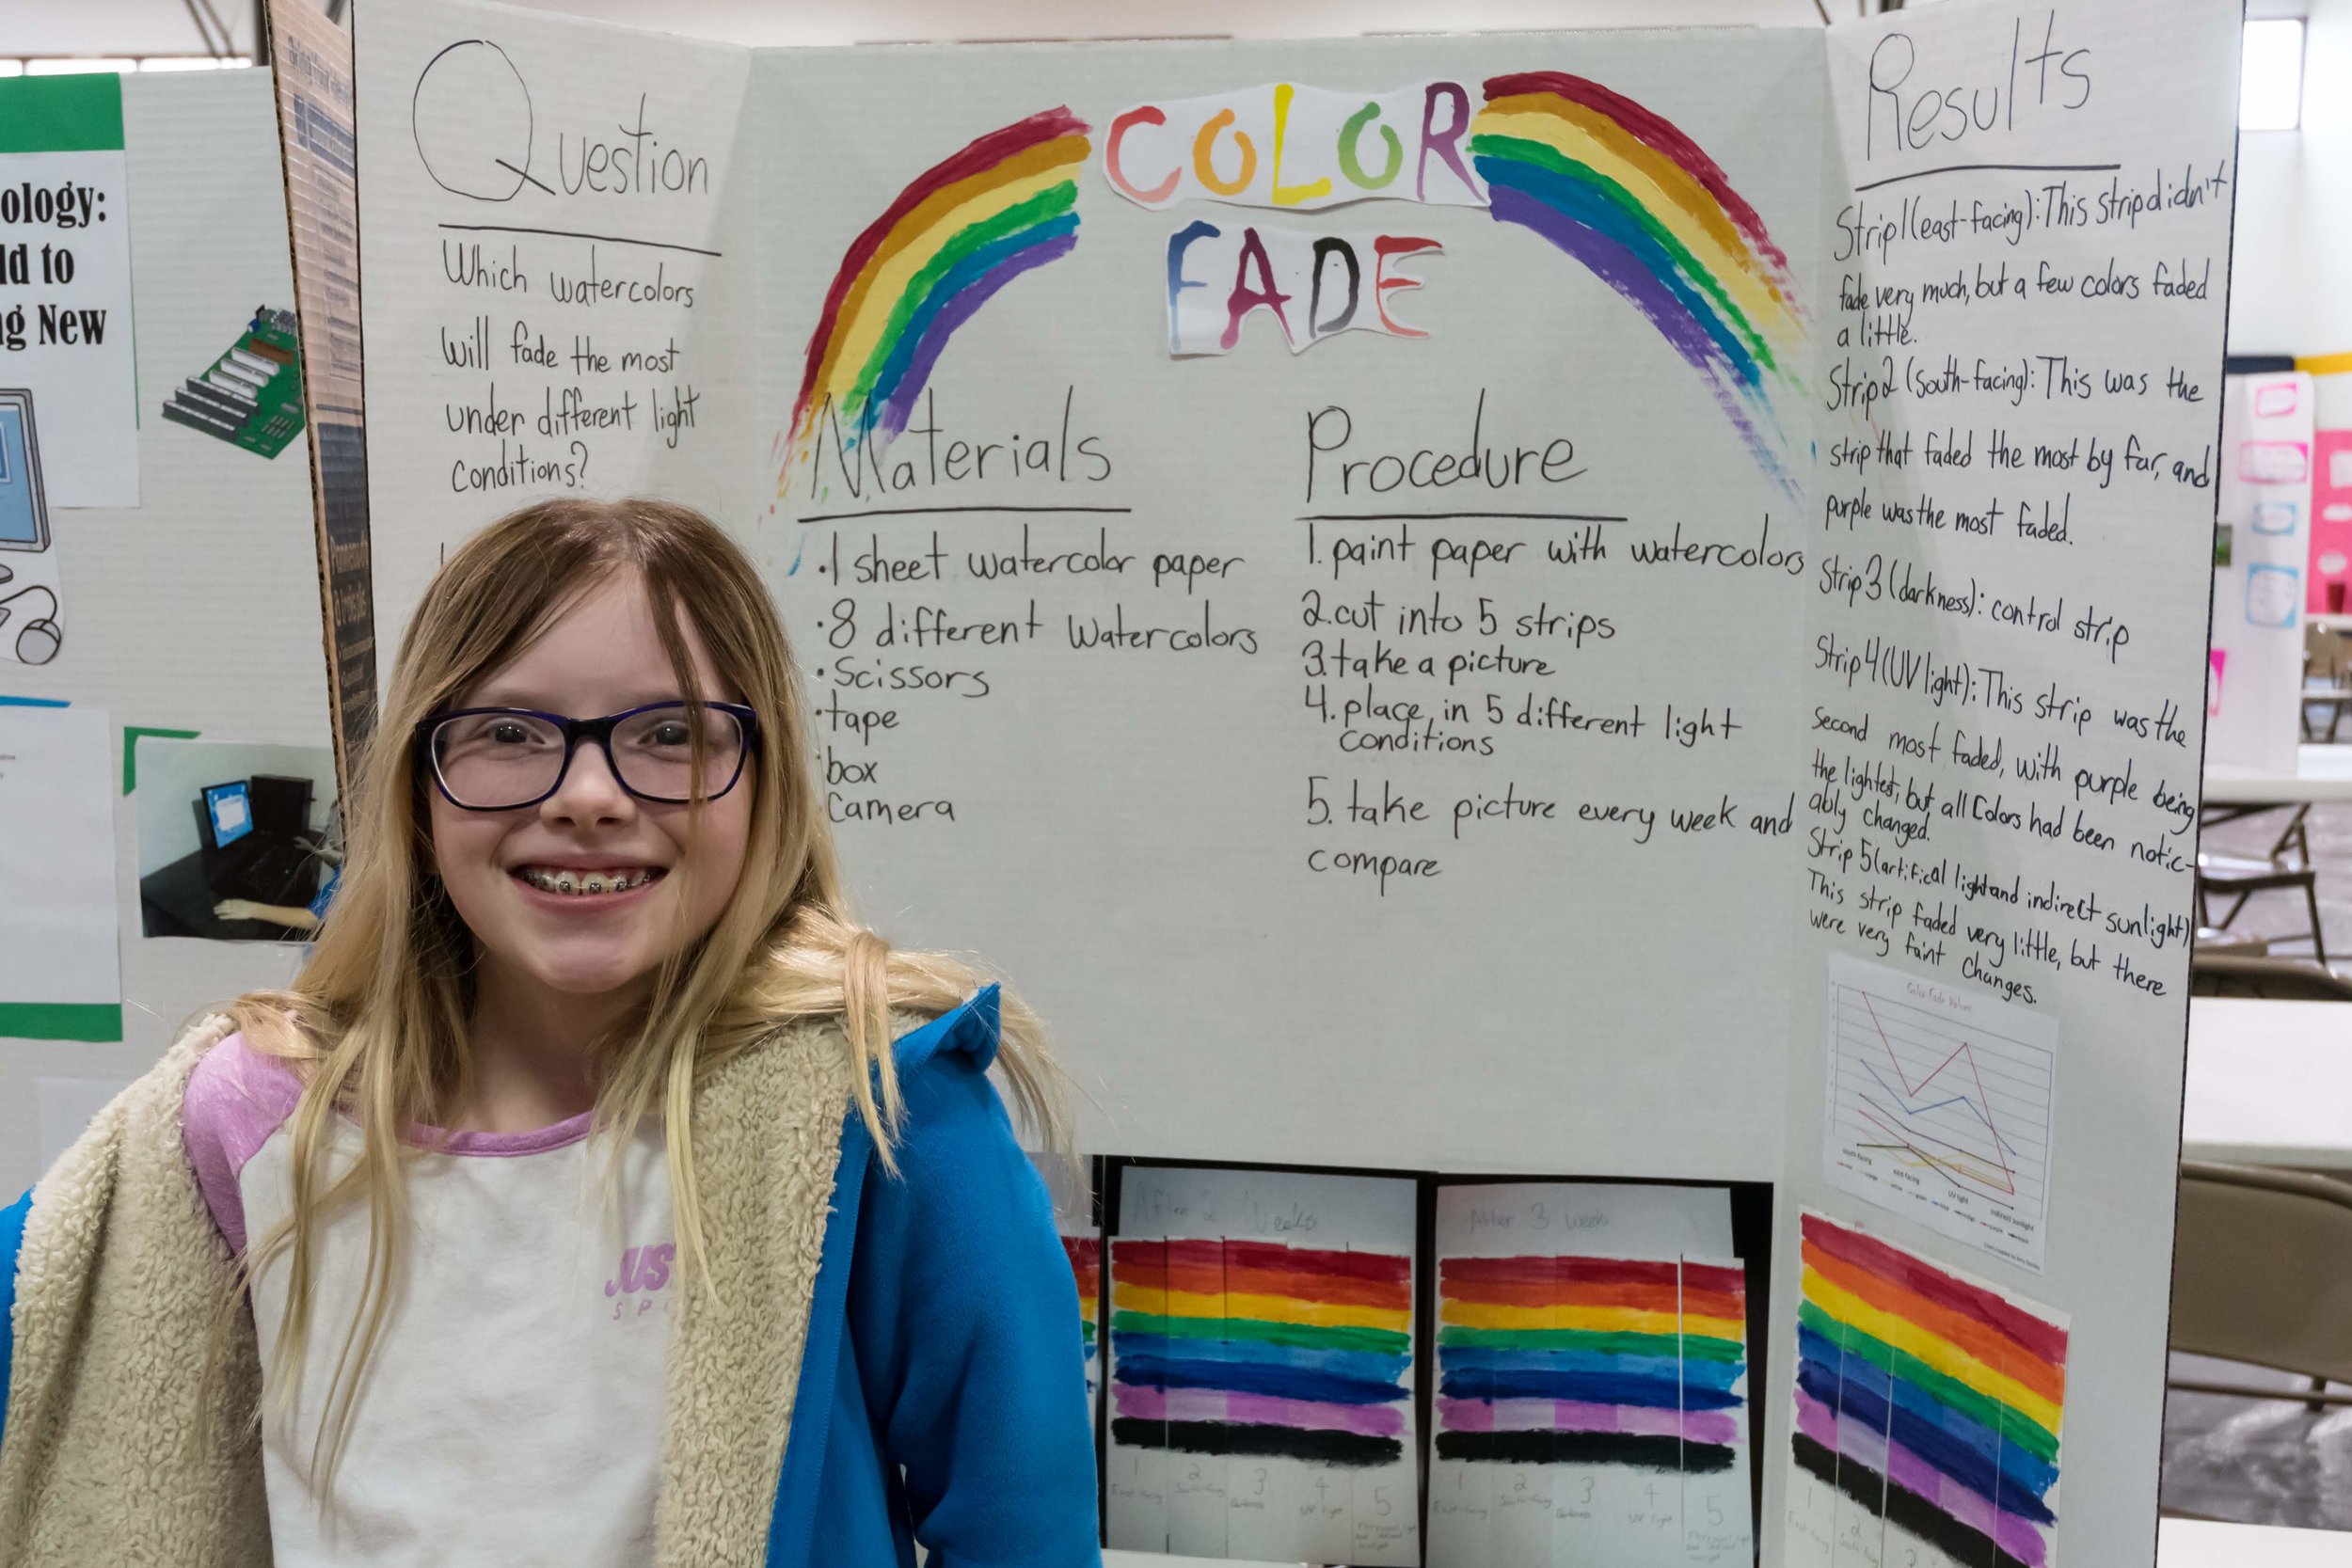 Question
Which watercolors
will fade the most
under different light
conditions?
COLOR
FADE
Materials
•1 sheet watercolor paper
•8 different Watercolors
•Scissors
•tape
box
Camera
Procedure
1. paint paper with watercolors
2. cut into 5 strips
3. take a picture
4. place in 5 different light
conditions
5. take picture every week and
compare
Results
Strip 1 (east-facing): This strip didn't
fade very much, but a few colors faded
a little.
Strip 2 (south-facing): This was the
strip that faded the most by far, and
purple was the most faded.
Strip 3 (darkness): control strip
Strip 4 (UV light): This strip was the
second most faded, with purple being
the lightest, but all Colors had been notic-
ably changed.
Strip 5 (artifical light and indirect sunlight)
This strip faded very little, but there
were very faint changes.
Color Fade Values
south facing
east facing
UV light
indirect sunlight
After Weeks
1 2 3 4 5
East-facing South-facing UV light
After 3 weeks
1 2 3 4 5
UV light
1 2 3
ology:
ld to
ng New
JUS
SPO